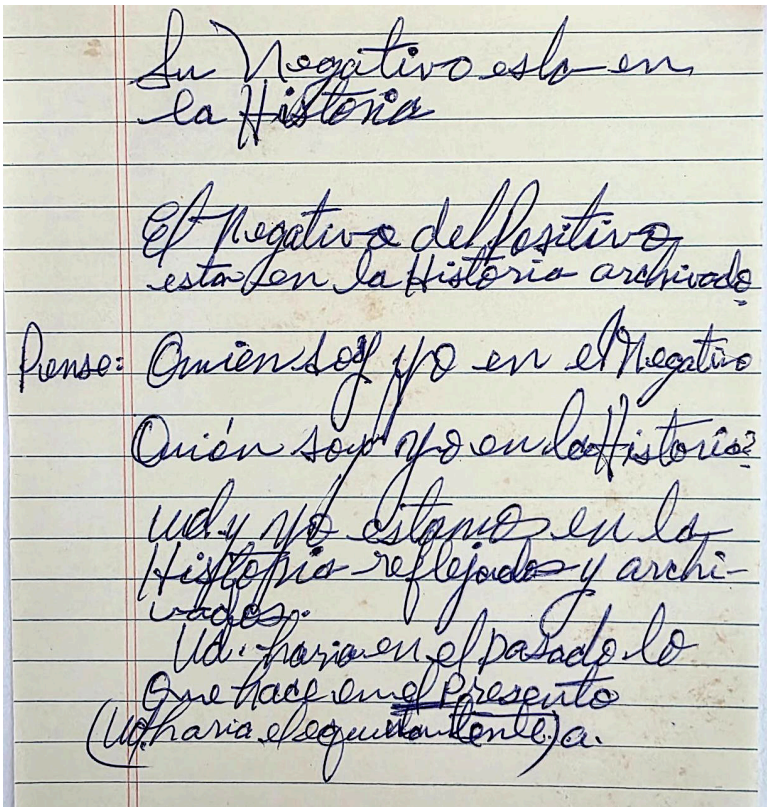 Su Negativo esta en
la Historia
El Negativo del Positivo
esta en la Historia archivado
Piense: Quien soy yo en el Negativo
Quién soy yo en la Historia?
Ud. y yo estamos en la
Historia reflejados y archi-
vados.
Ud. haria en el pasado lo
que hace en el Presente
(Ud. haria el equivalente) a.